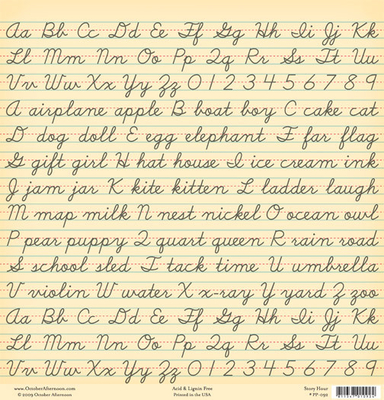 Aa Bb Cc Dd Ee Ff Gg Hh Ii Jj Kk
Ll Mm Nn Oo Pp Qq Rr Ss Tt Uu
Vv Ww Xx Yy Zz 0 1 2 3 4 5 6 7 8 9
A airplane apple B boat boy C cake cat
D dog doll E egg elephant F far flag
G gift girl H hat house I ice cream ink
J jam jar K kite kitten L ladder laugh
M map milk N nest nickel O ocean owl
P pear puppy Q quart queen R rain road
S school sled T tack time U umbrella
V violin W water X x-ray Y yard Z zoo
Aa Bb Cc Dd Ee Ff Gg Hh Ii Jj Kk
Ll Mm Nn Oo Pp Qq Rr Ss Tt Uu
Vv Ww Xx Yy Zz 0 1 2 3 4 5 6 7 8 9
www.OctoberAfternoon.com Acid & Lignin Free Story Hour
© 2009 October Afternoon Printed in the USA